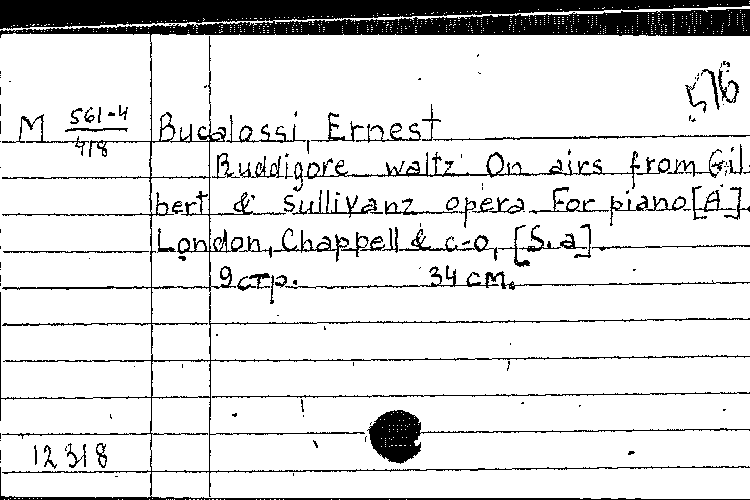 576
M 561-4/418 Bucalossi, Ernest
Ruddigore waltz. On airs from Gil-
bert & Sullivanz opera. For piano [A].
London, Chappell & c-o, [S.a].
9 стр. 34 см.
12318